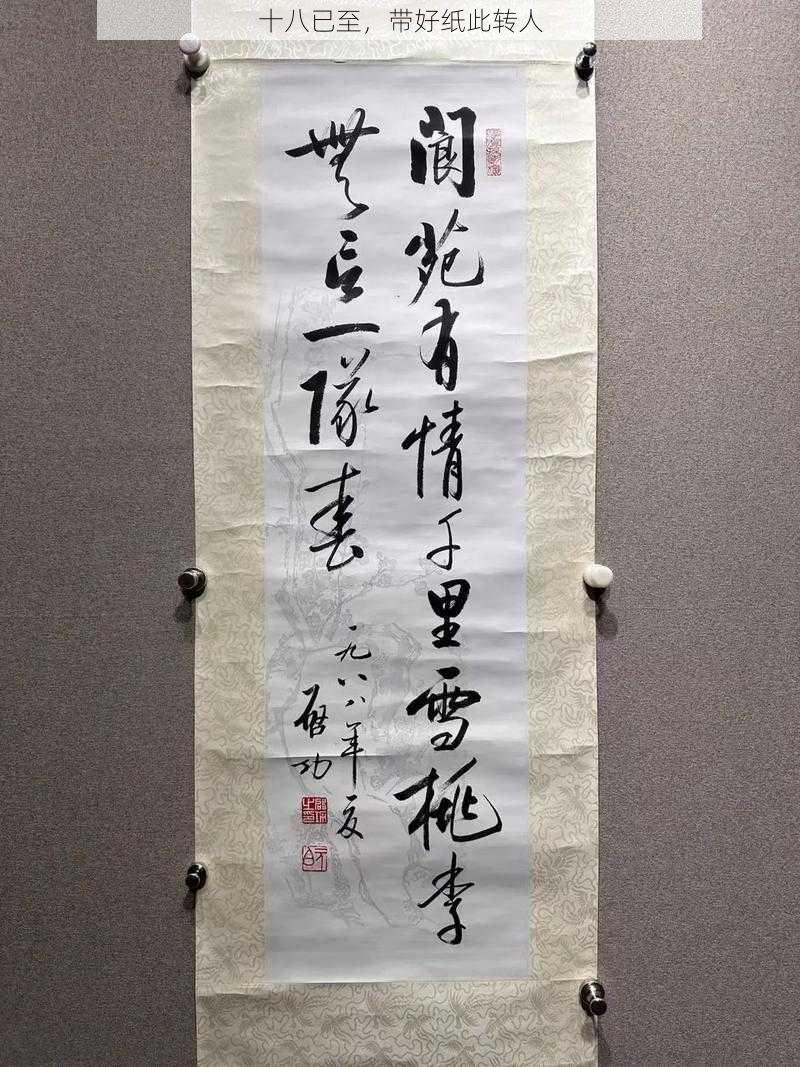 十八已至，带好纸此转人
阆苑有情千里雪桃李
無言一隊春
一九八八年夏
啓功